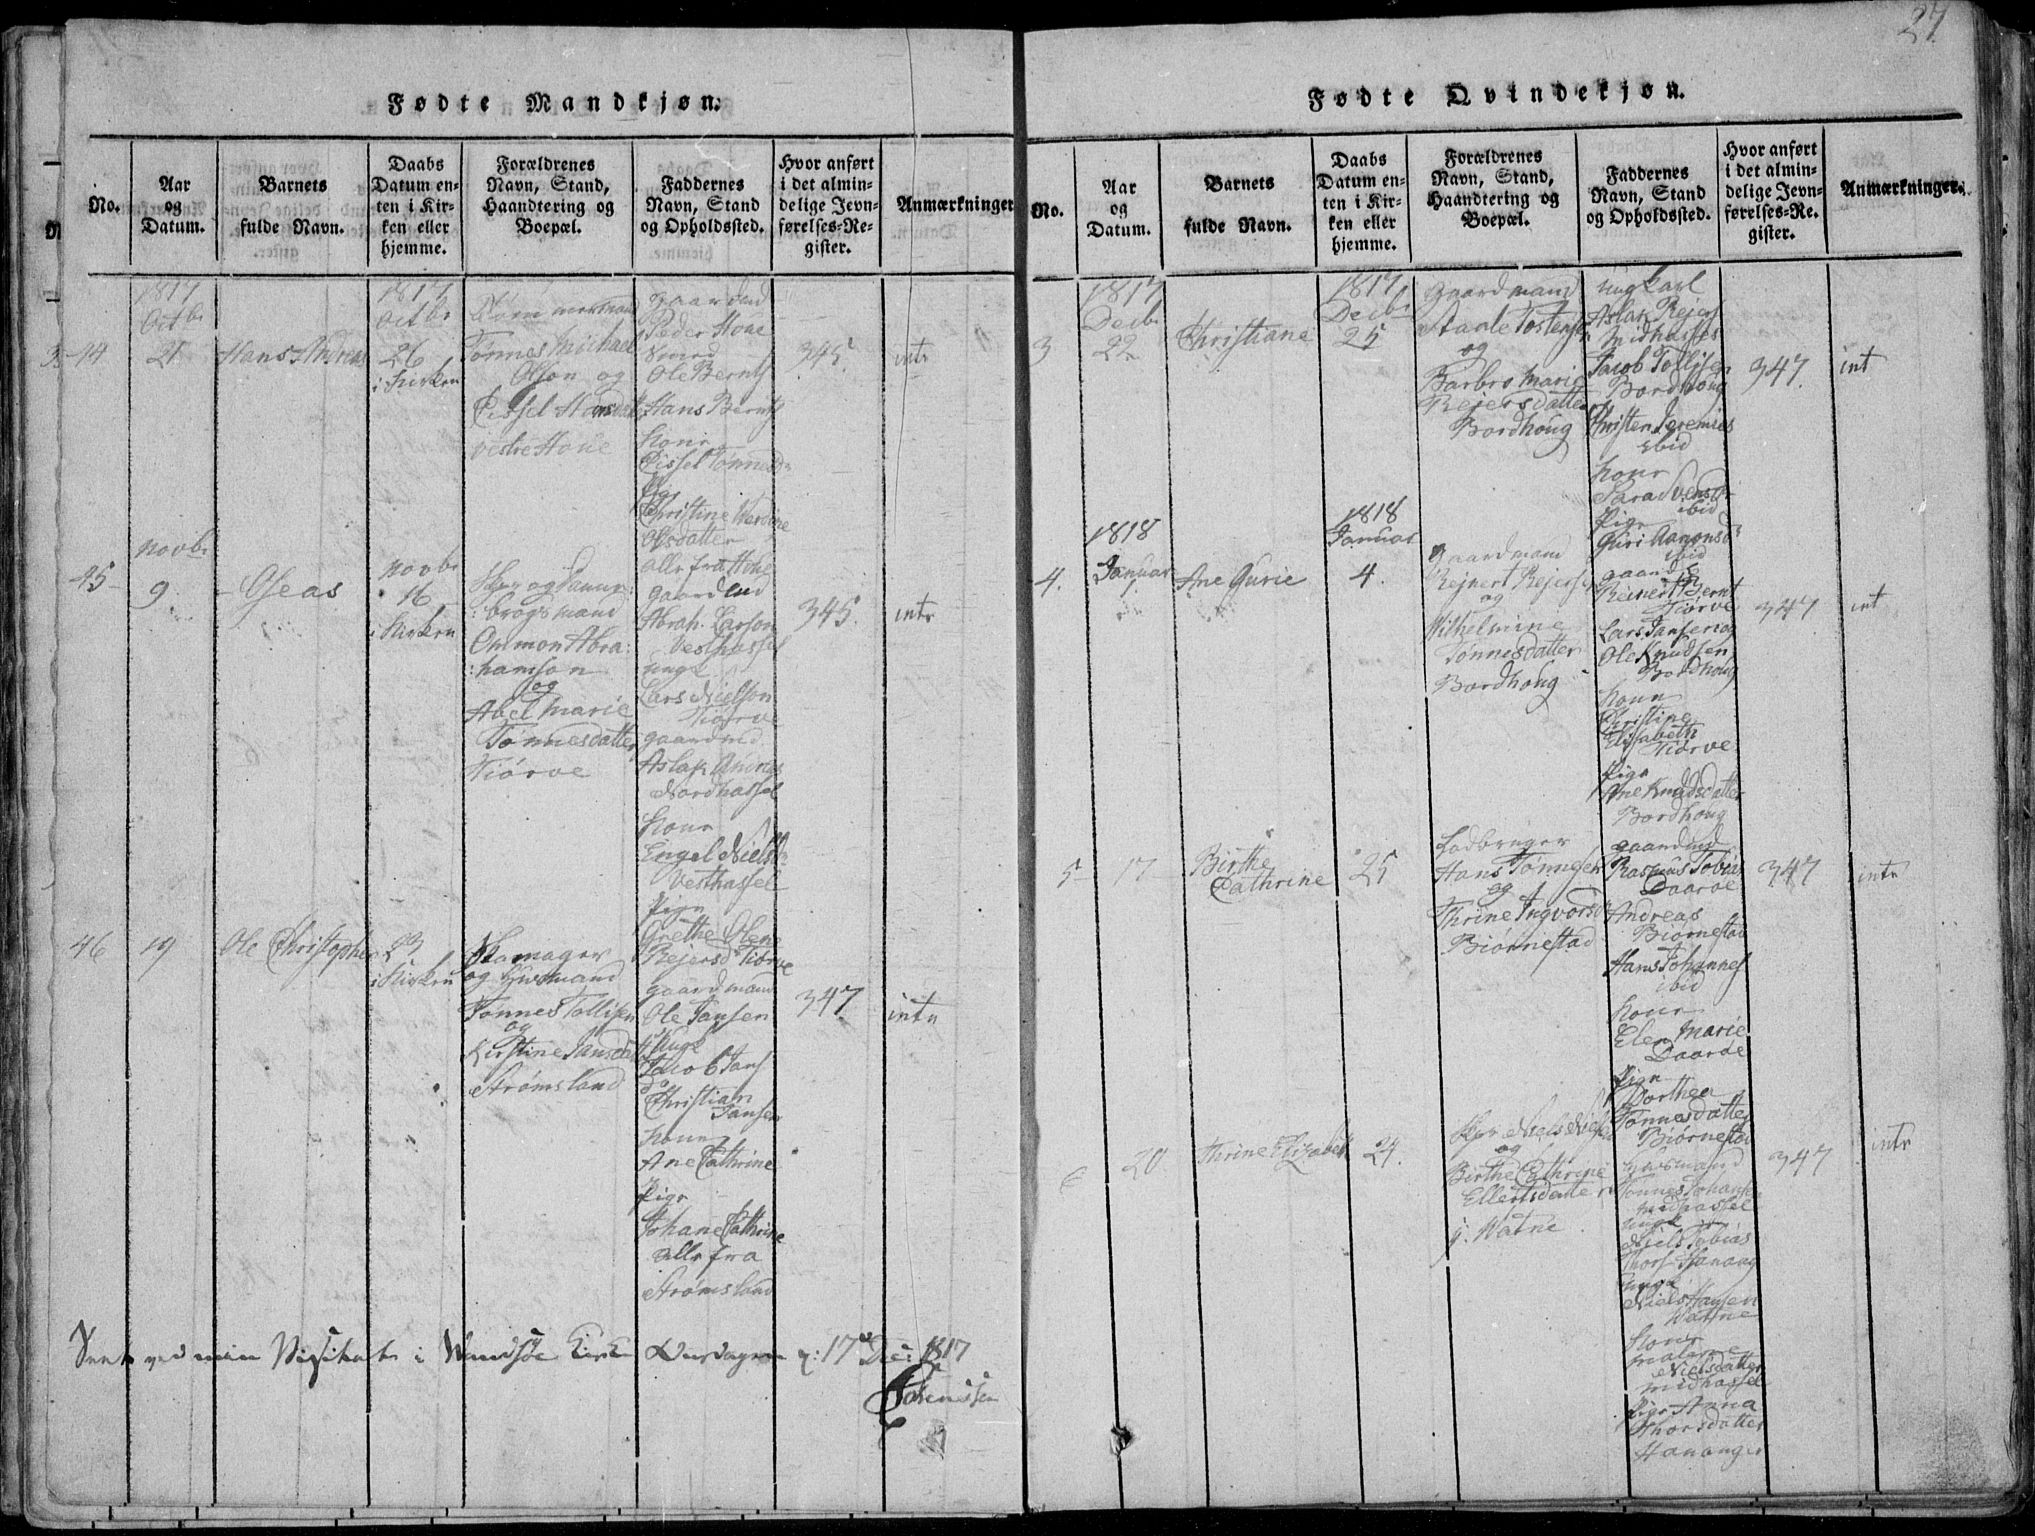 27
Fødte Mandkjøn.
No.
Aar
og
Datum.
Barnets
fulde Navn.
Daabs
Datum en-
ten i Kir-
ken eller
hjemme.
Forældrenes
Navn, Stand,
Haandtering og
Boepæl.
Faddernes
Navn, Stand
og Opholdssted.
Hvor anført
i det almin-
delige Jevn-
førelses-Re-
gister.
Anmærkninger
1817
Octbr
44
21
Hans Andreas
1817
Octbr
26
i Kirken
Tønnes Michael
Olson og
Sissel Hansdatt
vestre Houe
gaardmd
Peder Houe
Smed
Ole Bernts
Hans Bernts
Kone
Sissel Tønnesd
Pige
Christine Werdine
Olsdatter
alle fra Houe
345.
intr
Novbr
45
9
Oseas
Novbr
16
i Kirken
Skpr og Dannr
brogsmand
Ommon Abra:
:hamson
og
Abel Marie
Tønnesdatter
Kiørve
gaardmd
Abrah. Larson
Vesthassel
ungk
Lars Nielson
Kiørve
gaardmd
Aslak Andrs
Nordhassel
Kone
Engel Nielsd
Vesthassel
Pige
Grethe Olene
Rejersd Tiørve
345.
intr
46
19
Ole Christopher
23
i Kirken
Skomager
og Husmand
Tønnes Tollisen
og
Kirstine Jansdatt
Strømsland
gaardmand
Ole Jansen
Ungk
Jacob Jans
do
Christian
Jansen
Kone
Ane Cathrine
Pige
Johane Cathrine
alle fra
Strømsland
347
intr
Seet ved min Visitats i Wandsöe Kirke Onsdagen d: 17 Dec: 1817
Fødte Qvindekjøn.
No.
Aar
og
Datum.
Barnets
fulde Navn.
Daabs
Datum en-
ten i Kir-
ken eller
hjemme.
Forældrenes
Navn, Stand,
Haandtering og
Boepæl.
Faddernes
Navn, Stand
og Opholdssted.
Hvor anført
i det almin-
delige Jevn-
førelses-Re-
gister.
Anmærkninger.
1817
Decbr
3
22
Christiane
1817
Decbr
25
Gaardmand
Staale Tostensen
og
Barbro Marie
Rejersdatter
Bordhoug
ungkarl
Aslak Rejers
Midhassel
Jacob Tollisen
Bordhoug
Christen Jeremies
ibid
Kone
Sara Svensd
ibid
Pige
Guri Aamonsd
ibid
347.
int
1818
Januar
4.
1
Ane Gurie
1818
Januar
4.
Gaardmand
Rejnert Rejersen
og
Wilhelmine
Tønnesdatter
Bordhoug
gaardmd
Reinert Bernt
Tiørve
Lars Jansen og
Ole Knudsen
Bordhoug
Kone
Christine
Elisabeth
Tiørve
Pige
Ane Knudsdatter
Bordhoug
347
int
5
17
Birthe
Cathrine
25
Lodbruger
Hans Tønnesen
og
Thrine Ingvorsd
Biørnestad
gaardmd
Rasmus Tobias
Daarøe
Andreas
Biørnestad
Hans Johannes
ibid
Kone
Elen Marie
Daarøe
Pige
Dorthea
Tønnesdatter
Biørnestad
347
intr
6
20
Thrine Elizabeth
24.
Skpr Niels Nielsen
og
Birthe Cathrine
Ellertsdatter
y. Watne
Huusmand
Tønnes Johansen
Midhassel
ungk
Niels Tobias
Thors Hananger
ungk
Niels Hansen
Watne
Kone
Malene
Nielsdatter
Midhassel
Pige Anna
Thorsdatter
Hananger
347
intr